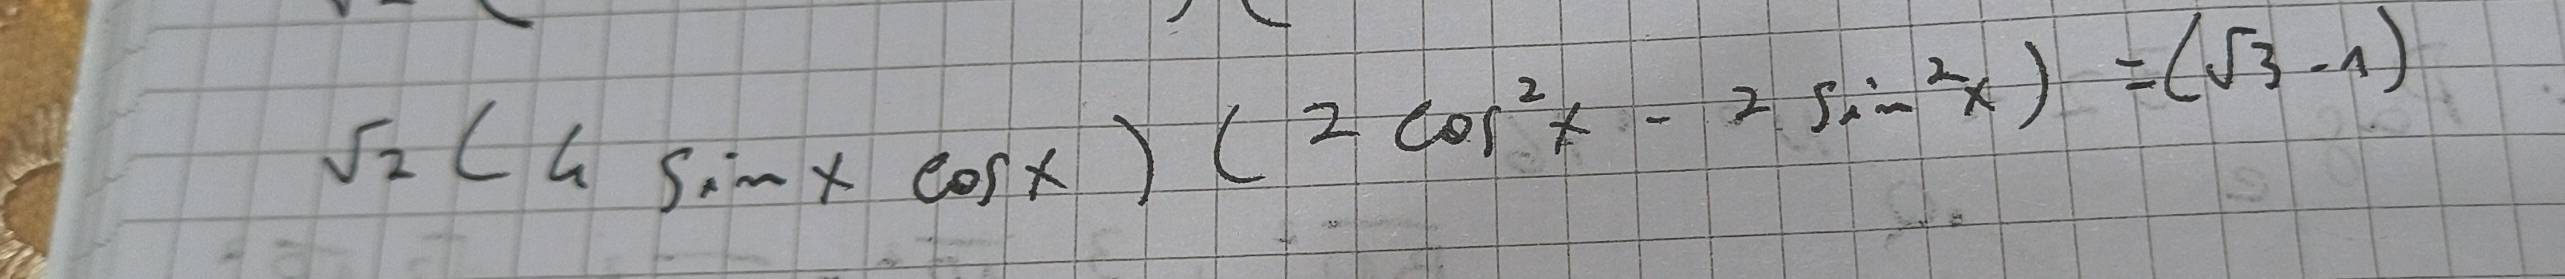 √2 (4 sin x cos x) (2 cos² x - 2 sin² x) = (√3 - 1)